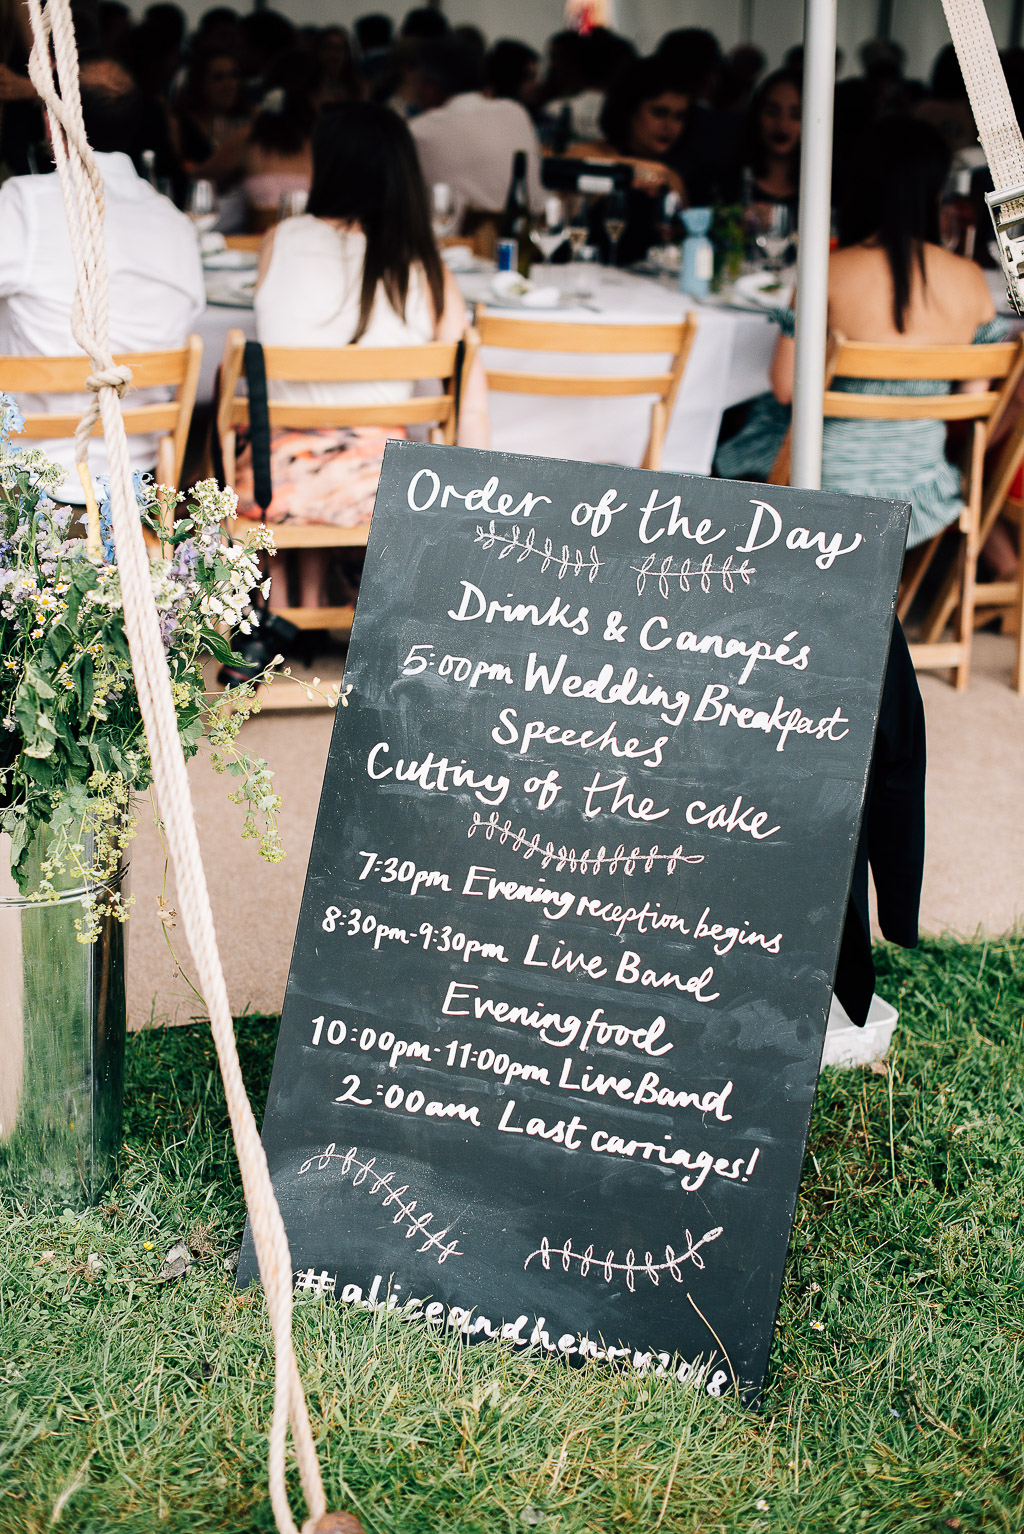 Order of the Day
Drinks & Canapés
5:00pm Wedding Breakfast
Speeches
Cutting of the cake
7:30pm Evening reception begins
8:30pm-9:30pm Live Band
Evening food
10:00pm-11:00pm Live Band
2:00am Last carriages!
#aliceandhenry2018